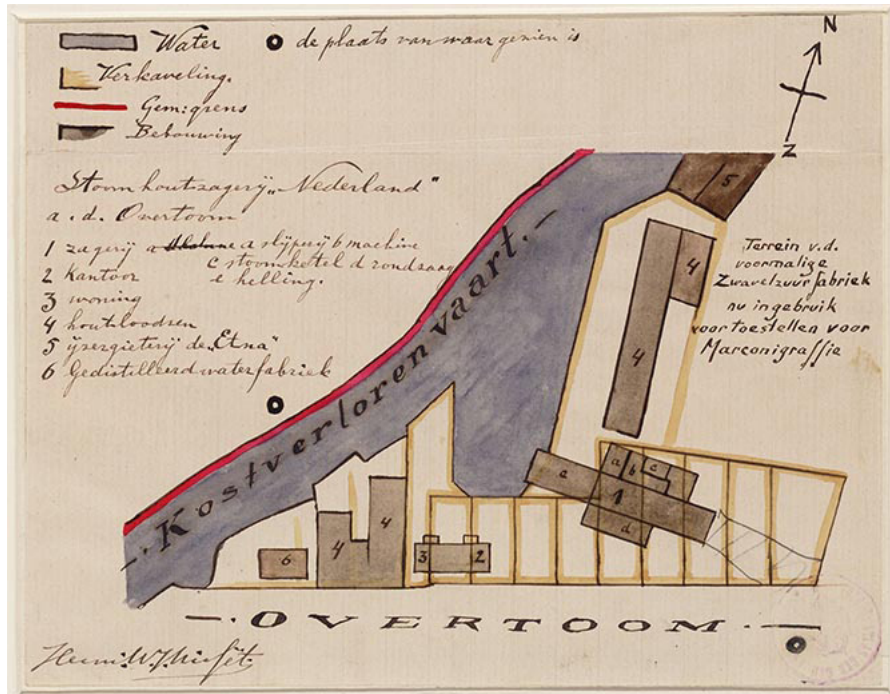 Water
de plaats van waar gezien is
Verkaveling.
Gem: grens
Bebouwing
N
Z
Stoomhoutzagerij „Nederland"
a. d. Overtoom
1 zagerij a slijperij b machine
c stoomketel d rondzaag
e helling.
2 Kantoor
3 woning
4 houtloodsen
5 ijzergieterij de „Etna"
6 Gedistilleerdwaterfabriek
Terrein v.d.
voormalige
Zwavelzuurfabriek
nu in gebruik
voor toestellen voor
Marconigraffie
Kostverlorenvaart.
5
4
4
a b c
e
1
d
4
4
6
3
2
OVERTOOM